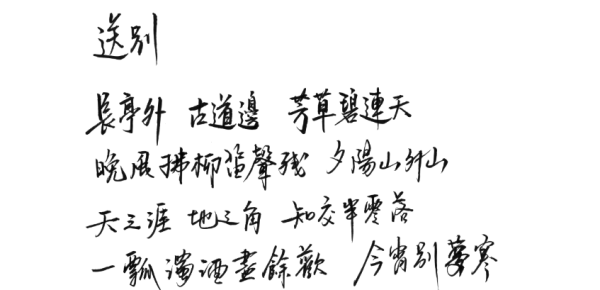 送别
長亭外 古道邊 芳草碧連天
晚風拂柳笛聲殘 夕陽山外山
天之涯 地之角 知交半零落
一瓢濁酒盡餘歡 今宵別夢寒